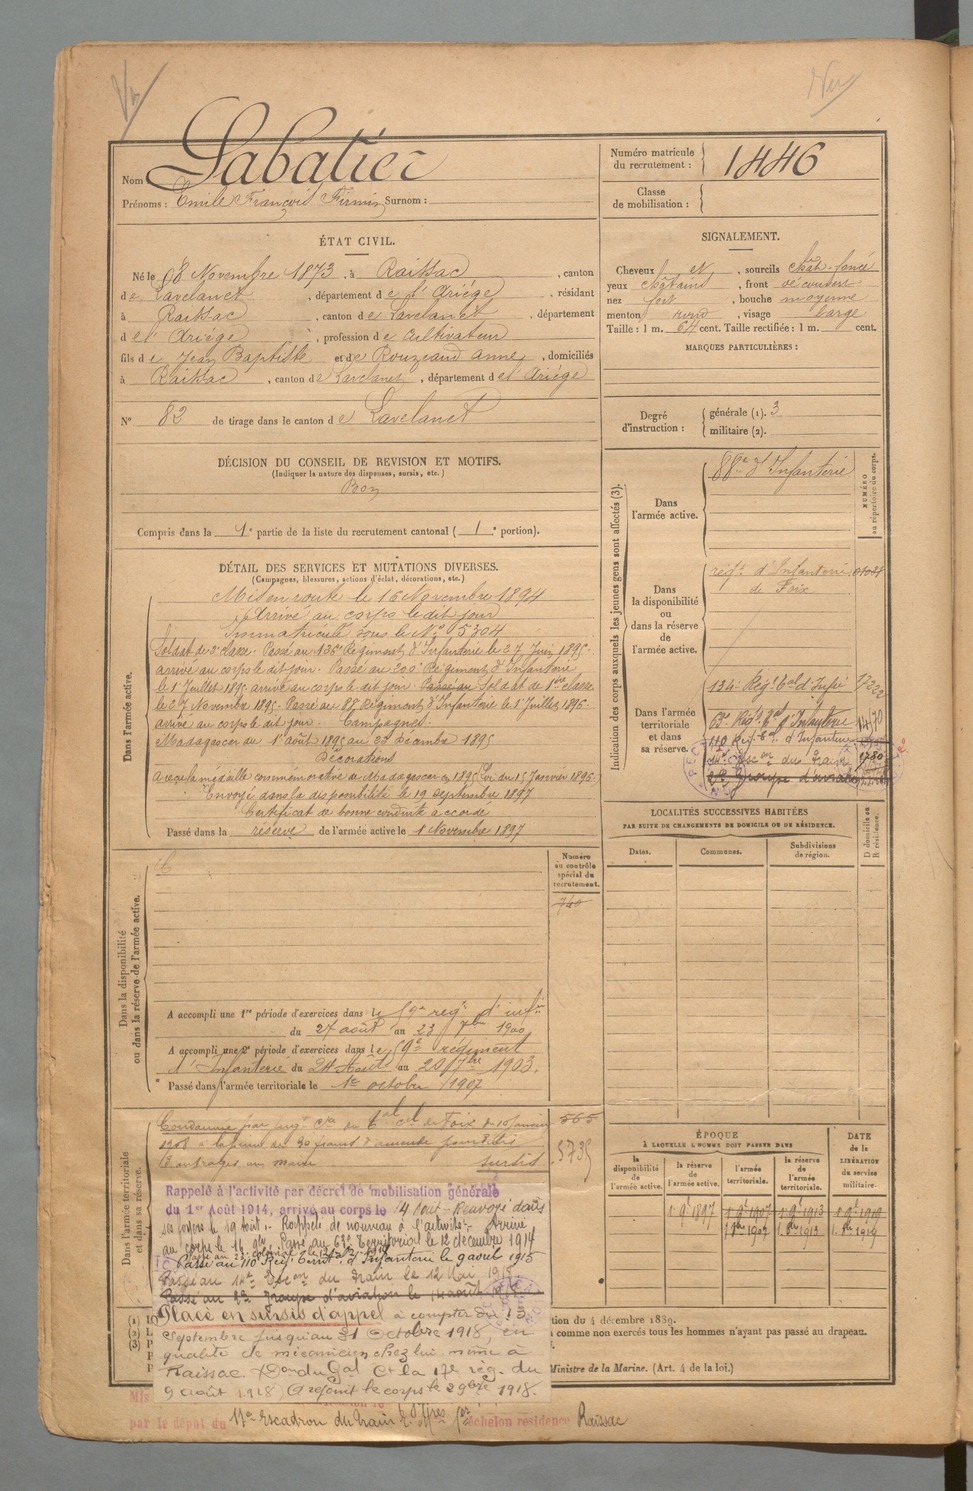 Nom Sabatier
Prénoms : Emile François Firmin Surnom :
Numéro matricule du recrutement : 1446
Classe de mobilisation :
ÉTAT CIVIL.
Né le 28 Novembre 1873, à Raissac, canton
de Lavelanet, département de l'Ariége, résidant
à Raissac, canton de Lavelanet, département
de l'Ariége, profession de cultivateur
fils de Jean Baptiste et de Rouzeaud Anne, domiciliés
à Raissac, canton de Lavelanet, département de l'Ariége
N° 82 de tirage dans le canton de Lavelanet
SIGNALEMENT.
Cheveux et, sourcils chât. foncé
yeux châtains, front découvert
nez fort, bouche moyenne
menton rond, visage large
Taille : 1 m. 64 cent. Taille rectifiée : 1 m. cent.
MARQUES PARTICULIÈRES :
Degré d'instruction : générale (1). 3
militaire (2).
DÉCISION DU CONSEIL DE REVISION ET MOTIFS.
(Indiquer la nature des dispenses, sursis, etc.)
Bon
Compris dans la 1e partie de la liste du recrutement cantonal ( 1e portion).
DÉTAIL DES SERVICES ET MUTATIONS DIVERSES.
(Campagnes, blessures, actions d'éclat, décorations, etc.)
Dans l'armée active.
Mis en route le 16 Novembre 1894
Arrivé au corps le dit jour
Immatriculé sous le N° 5304
Soldat de 2e classe. Passé au 136e Régiment d'Infanterie le 27 Juin 1895.
arrivé au corps le dit jour. Passé au 200e Régiment d'Infanterie
le 1er Juillet 1895 arrivé au corps le dit jour. Passé au Soldat de 1ère classe
le 27 Novembre 1895. Passé au 88e Régiment d'Infanterie le 1er Juillet 1896.
arrivé au corps le dit jour. Campagnes.
Madagascar du 1er août 1895 au 23 décembre 1895
Décorations
A reçu la médaille commémorative de Madagascar en 1895 Loi du 15 Janvier 1896.
Envoyé dans la disponibilité le 19 septembre 1897
Certificat de bonne conduite accordé
Passé dans la réserve de l'armée active le 1 Novembre 1897
Indication des corps auxquels les jeunes gens sont affectés (3).
NUMÉRO au répertoire du corps.
Dans l'armée active.
88e d'Infanterie
Dans la disponibilité ou dans la réserve de l'armée active.
régt. d'Infanterie
de Foix
Dans l'armée territoriale et dans sa réserve.
134e Régt. tal d'Infie
63e Régt. tal d'Infanterie
110 Régt. d'Infanterie
Escon du Train
2e Groupe d'aviation
LOCALITÉS SUCCESSIVES HABITÉES
PAR SUITE DE CHANGEMENTS DE DOMICILE OU DE RÉSIDENCE.
Dates. Communes. Subdivisions de région. D domicile ou R résidence.
Dans la disponibilité ou dans la réserve de l'armée active.
Numéro au contrôle spécial du recrutement.
740
A accompli une 1re période d'exercices dans le 59e régt d'infie
du 27 août au 23 7bre 1900
A accompli une 2e période d'exercices dans le 59e régiment
d'Infanterie du 24 Août au 20 7bre 1903.
Passé dans l'armée territoriale le 1er octobre 1907
Dans l'armée territoriale et dans sa réserve.
565
5735
Condamné par jugt. du tal de Foix
1908 à la peine de amende pour
outrages au maire sursis
Rappelé à l'activité par décret de mobilisation générale
du 1er Août 1914, arrivé au corps le 4 Août. Renvoyé dans
ses foyers le 19 août. Rappelé de nouveau à l'activité. Arrivé
au corps le 16 9bre. Passé au 63e Territorial le 12 décembre 1914
Passé au 110 Rég. Territ. d'Infanterie le 9 août 1915
Passé au Escon du Train le 12 Mai
Passé au 2e Groupe d'aviation le
Placé en sursis d'appel à compter du 13
Septembre jusqu'au 31 Octobre 1918 en
qualité de mécanicien chez lui même à
Raissac (Don du Gal Ct la 17e rég. du
9 août 1918) A rejoint le corps le 2 9bre 1918.
par le dépôt du 17e Escadron du train échelon résidence Raissac
ÉPOQUE
À LAQUELLE L'HOMME DOIT PASSER DANS
la disponibilité de l'armée active. la réserve de l'armée active. l'armée territoriale. la réserve de l'armée territoriale.
DATE de la LIBÉRATION du service militaire.
1 9e 1897 1 9e 1907 1 9e 1913 1 9e 1919
1 8bre 1907 1 8re 1913 1 8re 1919
tion du 4 décembre 1889.
comme non exercés tous les hommes n'ayant pas passé au drapeau.
Ministre de la Marine. (Art. 4 de la loi.)